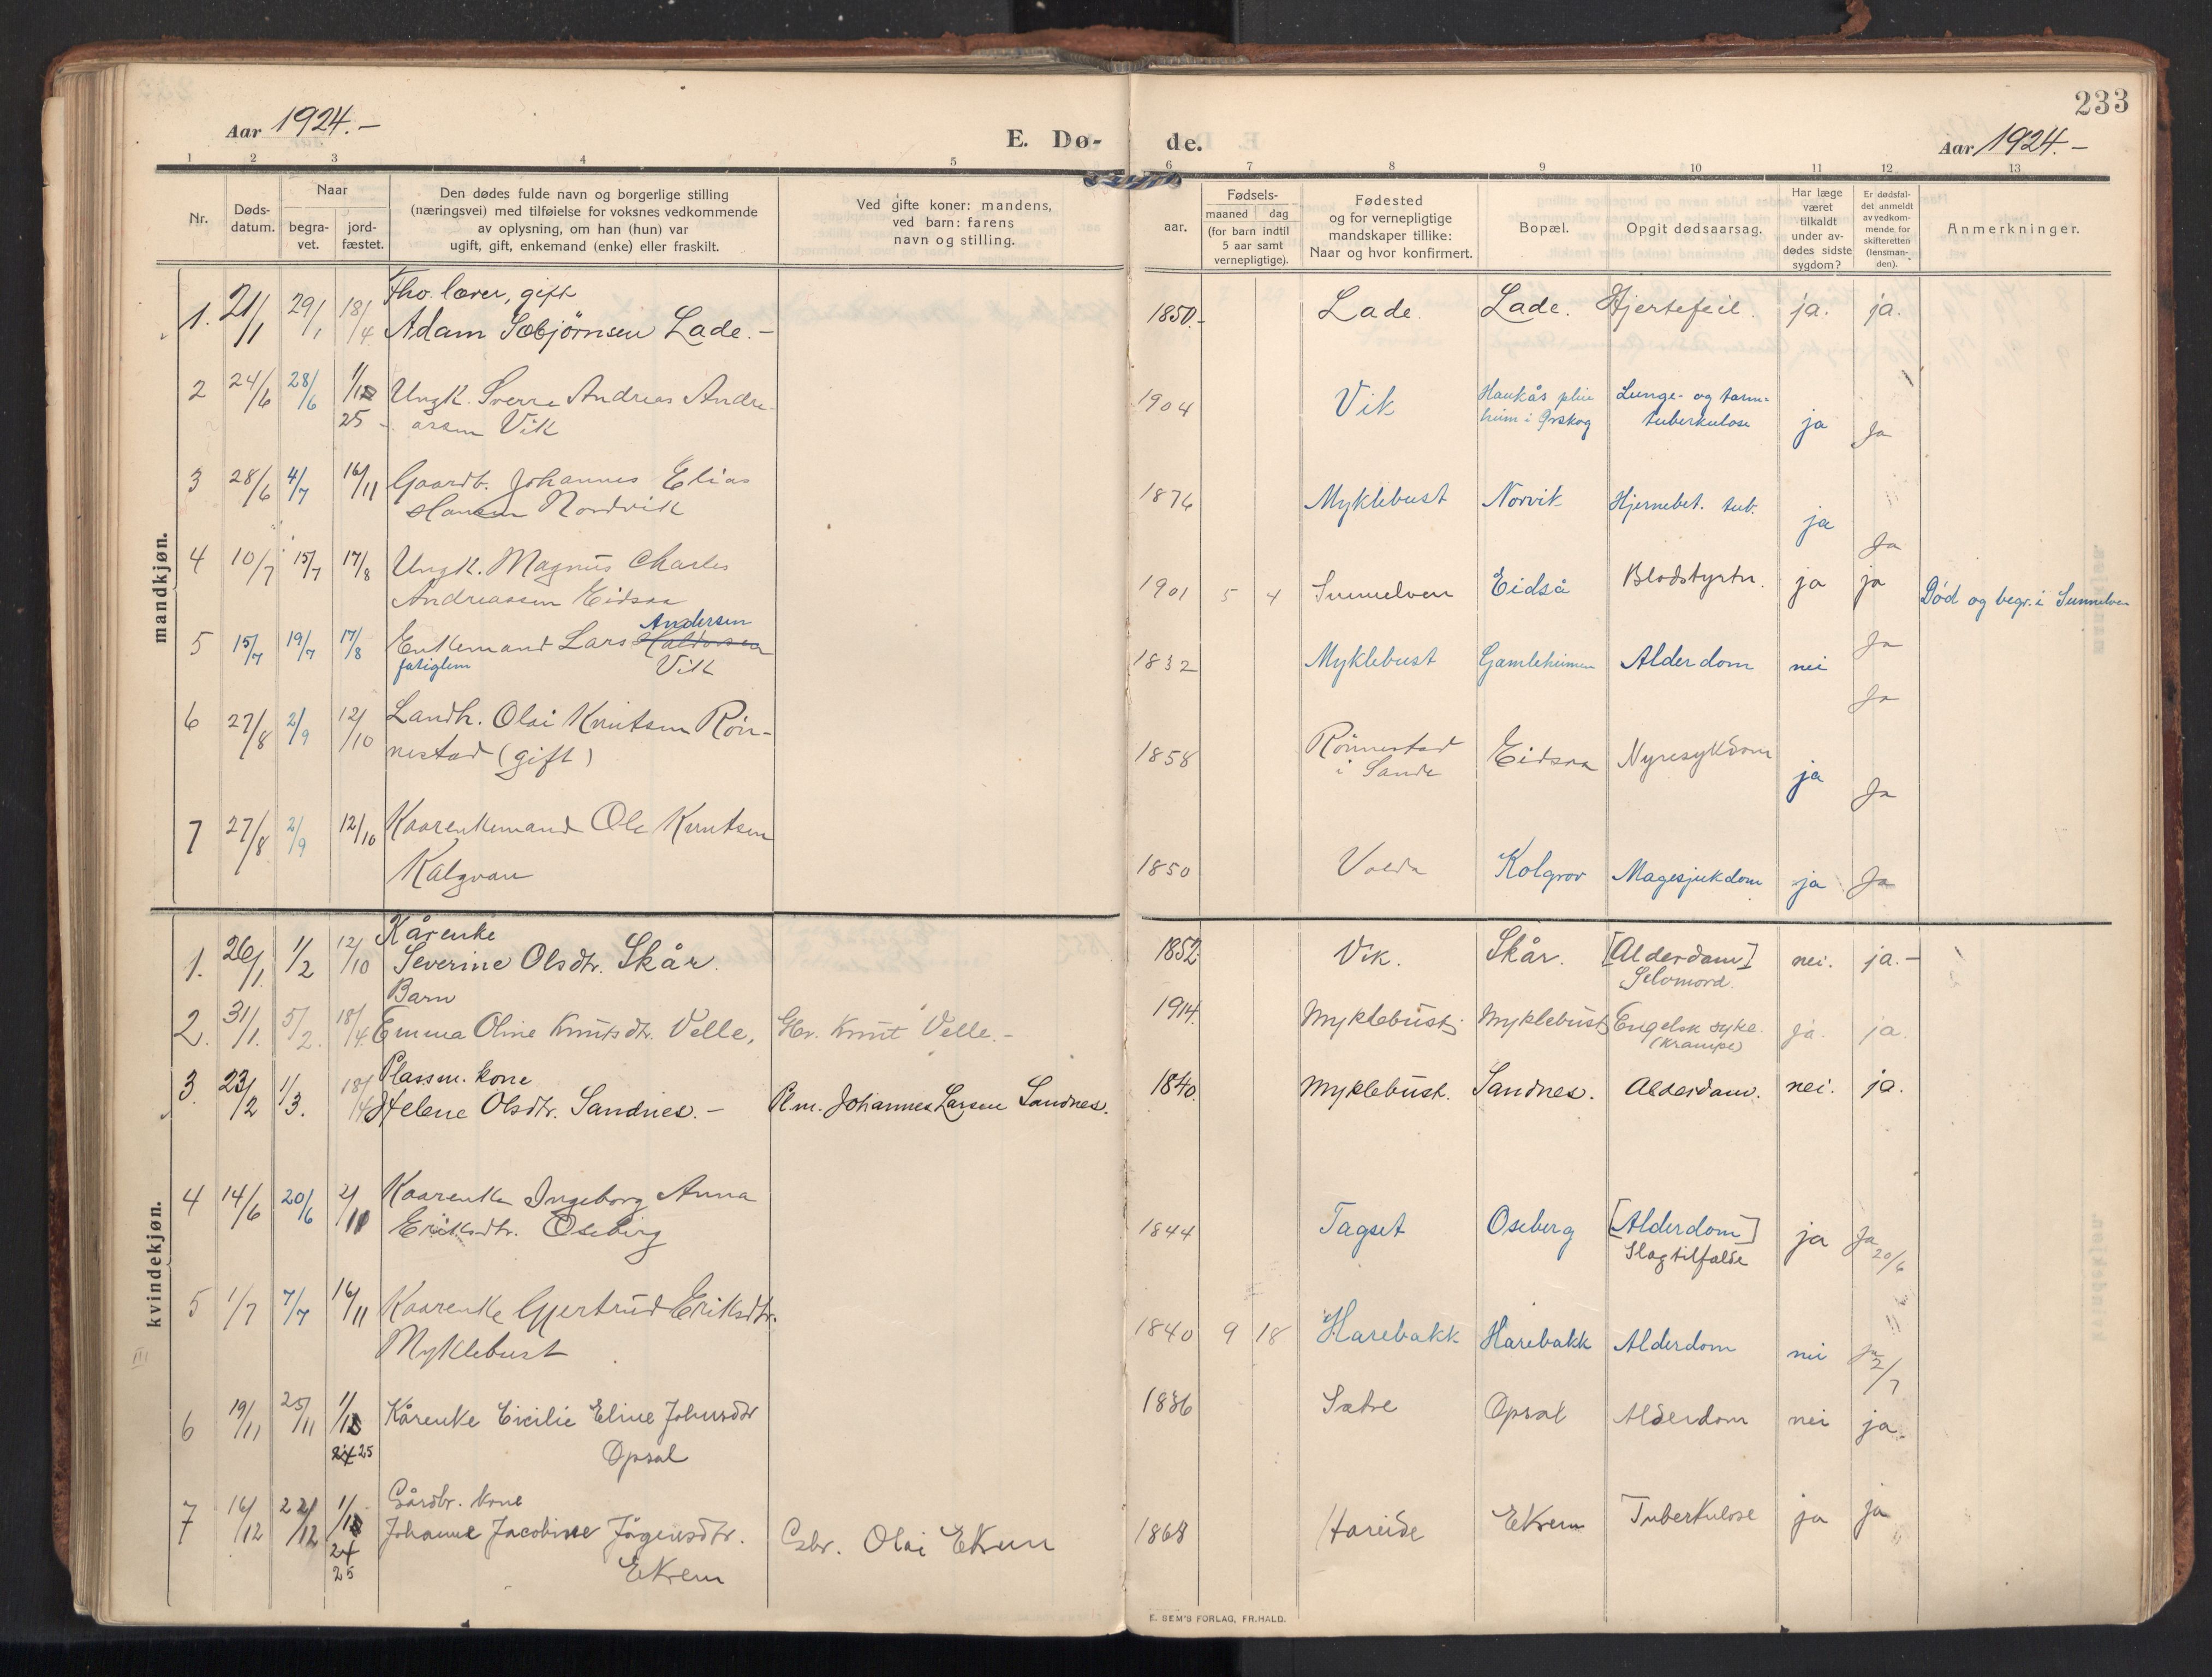 233
Aar 1924.-
E. Dø-
de.
Aar 1924.-
1 2 3 4 5 6 7 8 9 10 11 12 13
Nr.
Døds-
datum.
Naar
begra-
vet.
jord-
fæstet.
Den dødes fulde navn og borgerlige stilling
(næringsvei) med tilføielse for voksnes vedkommende
av oplysning, om han (hun) var
ugift, gift, enkemand (enke) eller fraskilt.
Ved gifte koner: mandens,
ved barn: farens
navn og stilling.
Fødsels-
aar.
maaned dag
(for barn indtil
5 aar samt
vernepligtige).
Fødested
og for vernepligtige
mandskaper tillike:
Naar og hvor konfirmert.
Bopæl.
Opgit dødsaarsag.
Har læge
været
tilkaldt
under av-
dødes sidste
sygdom?
Er dødsfal-
det anmeldt
av vedkom-
mende for
skifteretten
(lensman-
den).
Anmerkninger.
mandkjøn.
Fho. lærer, gift
1. 21/1 29/1 18/4 Adam Sæbjørnsen Lade.- 1850.- Lade. Lade. Hjertefeil. ja. ja.
2 24/6 28/6 1/1 25 Ungk. Sverre Andreas Andre-
assen Vik 1904 Vik Haukås pleie
heim i Ørskog Lunge- og tarm-
tuberkulose ja Ja
3 28/6 4/7 16/11 Gaardb. Johannes Elias
Hansen Nordvik 1876 Myklebust Norvik Hjernebet. tub. ja Ja
4 10/7 15/7 17/8 Ungk. Magnus Charles
Andreassen Eidsaa 1901 5 4 Sunnelven Eidså Blodstyrtn. ja ja Død og begr. i Sunnelven
Andersen
5 15/7 19/7 17/8 Enkemand Lars Haldorsen
fatiglem Vik 1832 Myklebust Gamleheimen Alderdom nei Ja
Ja
6 27/8 2/9 12/10 Landh. Olai Knutsen Røn-
nestad (gift) 1858 Rønnestad
i Sande Eidsaa Nyresykdom ja Ja
7 27/8 2/9 12/10 Kaarenkemand Ole Knutsen
Kalgrav 1850 Volda Kolgrov Magesjukdom ja Ja
kvindekjøn.
Kårenke
1. 26/1 1/2 12/10 Severine Olsdtr. Skår. 1852 Vik. Skår. [Alderdam]
Selvmord. nei. ja.-
Barn
2. 31/1. 5/2. 18/4 Emma Oline Knutsdtr. Velle, Gbr. Knut Velle.- 1914. Myklebust. Myklebust Engelsk syke.
(Krampe) ja. ja.
Plassm. kone
3. 23/2 1/3. 18/4 Helene Olsdtr. Sandnes.- Pl.m. Johannes Larsen Sandnes. 1840. Myklebust. Sandnes. Alderdam. nei. ja.
4 14/6 20/6 2/11 Kaarenke Ingeborg Anna
Eriksdtr. Oseberg 1844 Tagset Oseberg [Alderdom]
Slagtilfælde ja Ja
20/6
5 1/7 7/7 16/11 Kaarenke Gjertrud Eriksdtr.
Myklebust 1840 9 18 Harebakk Harebakk Alderdom nei ja
2/7
6 19/11 25/11 1/1 25 Kårenke Cicilie Eline Johnsdtr
Opsal 1836 Sætre Opsal Alderdom nei ja.
Gårdbr. kone
7 16/12 22/12 1/1 24 25 Johanne Jacobine Jågensdtr.
Ekrem Gbr. Olai Ekrem 1868 Hareide Ekrem Tuberkulose ja ja
III
E. SEM'S FORLAG, FR.HALD.